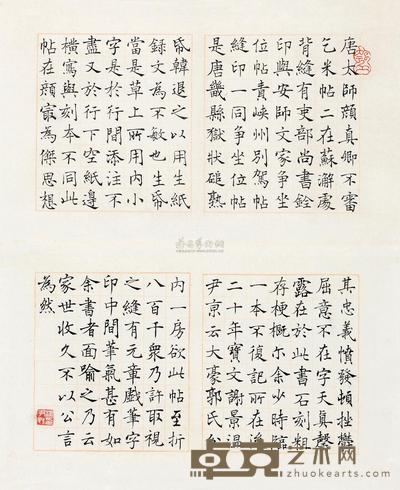 唐太師顔真卿不審
乞米帖二在蘇澥處
背縫有吏部尚書銓
印與安師文家爭坐
位帖責峽州别駕帖
縫印一同爭坐位帖
是唐畿縣獄狀磓熟
帋韓退之以用生紙
録文為不敏也生帋
當是草上所用内小
字是於行間添注不
盡又於行下空紙邊
横寫與刻本不同此
帖在顔最為傑思想
其忠義憤發頓挫欝
屈意不在字天真罄
露在於此書石刻粗
存梗概尒余少時臨
一本不復記所在後
二十年寶文謝景温
尹京云大豪郭氏分
内一房欲此帖至折
八百千衆乃許取視
之縫有元章戲筆字
印中間筆氣甚有如
余書者面喻之乃云
家世收久不以公言
為然
卓克艺术网
zhuokearts.com